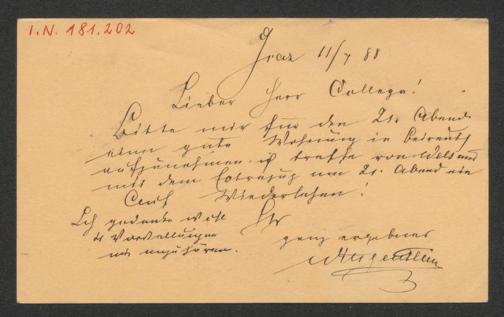 I.N. 181.202
Graz 11/7 88
Lieber Herr College!
Bitte mir für den 21. Abend
eine gute Wohnung in Beireuth
aufzunehmen. ich treffe von Wels
mit dem Extrazug am 21. Abend ein
Auf Wiedersehen!
Ihr
Ich gedenke wohl
Vorstellungen
mir anzuhören.
ganz ergebener